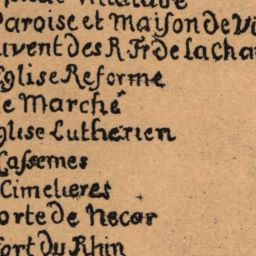 Paroise et Maison de Vi
uvent des R. Fr. de la Cha
Eglise Reforme
le Marché
glise Lutherien
Cassernes
Cimetieres
orte de Necar
fort du Rhin